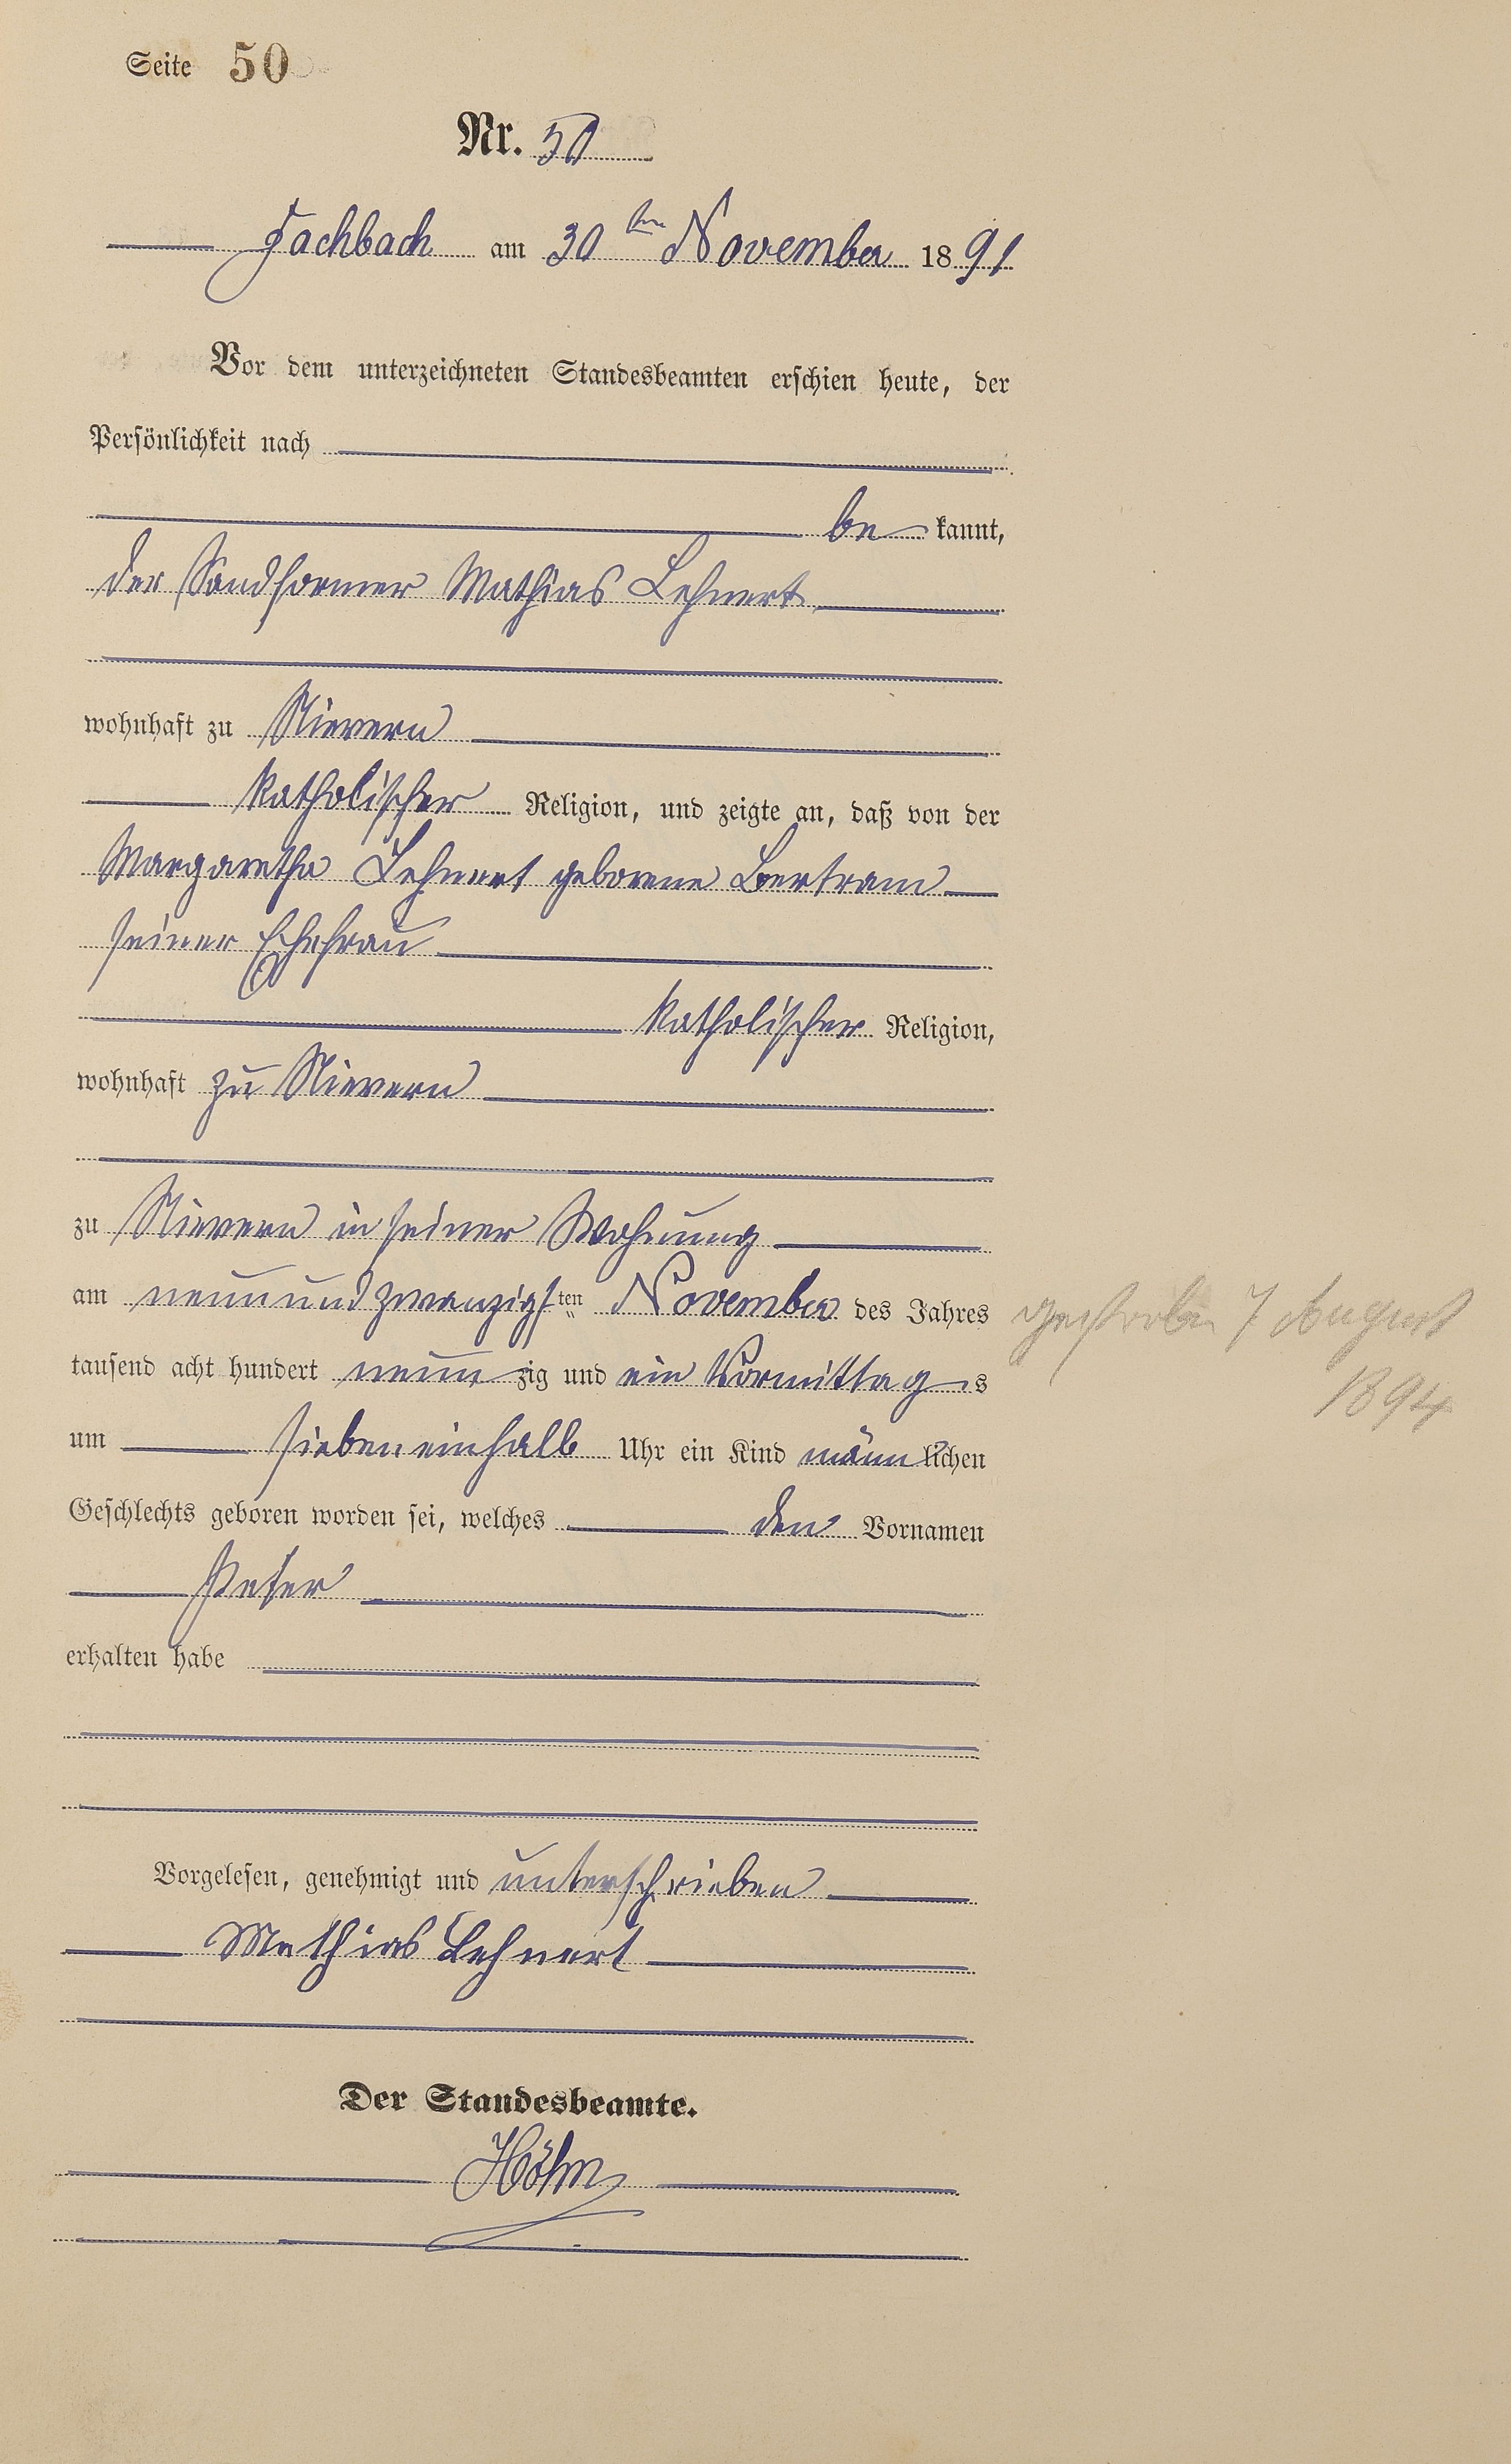 Seite 50
Nr. 50
Fachbach am 30ten November 1891
Vor dem unterzeichneten Standesbeamten erschien heute, der
Persönlichkeit nach
be kannt,
der Sandformer Mathias Lehnert
wohnhaft zu Nievern
katholischer Religion, und zeigte an, daß von der
Margaretha Lehnert geborene Bertram
seiner Ehefrau
katholischer Religion,
wohnhaft zu Nievern
zu Nievern in seiner Wohnung
am neunundzwanzigsten November des Jahres
tausend acht hundert neun zig und ein Vormittag s
um siebeneinhalb Uhr ein Kind männ lichen
Geschlechts geboren worden sei, welches den Vornamen
Peter
erhalten habe
Vorgelesen, genehmigt und unterschrieben
Mathias Lehnert
Der Standesbeamte.
Höhn
gestorben 7 August
1894